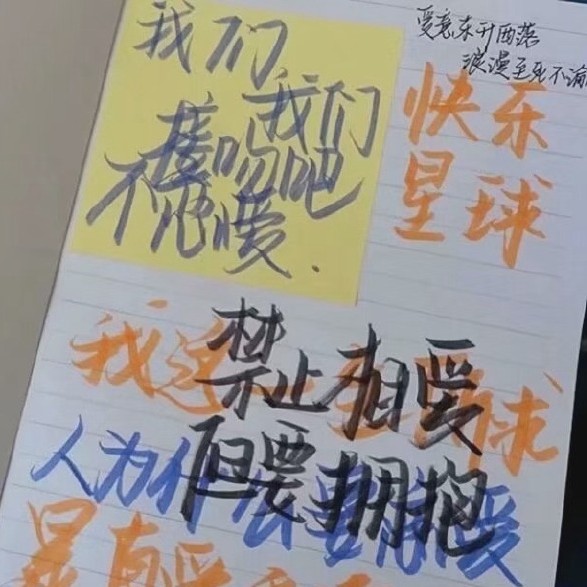 爱意东升西落
浪漫至死不渝
我们
我们
接吻吧
不
爱.
快乐
星球
禁止相爱
但要拥抱
我
球
人为什么要
爱